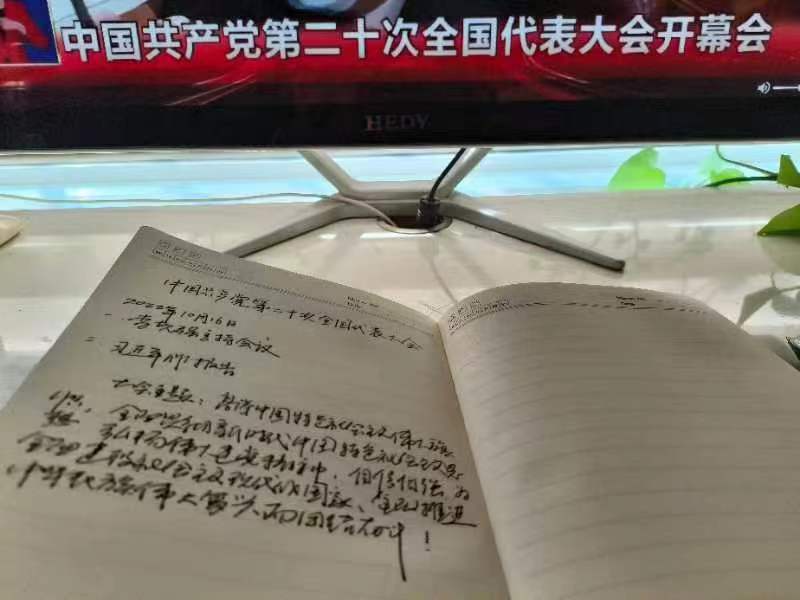 中国共产党第二十次全国代表大会开幕会
HEDY
中国共产党第二十次全国代表大会
2022年10月16日
一 李克强主持会议
二 习近平作报告
大会主题：高举中国特色社会主义伟大旗
全面 新时代中国特色社会主义思
弘扬伟大建党精神，自信自强
全面建设社会主义现代化国家、全面推进
中华民族伟大复兴而团结奋斗！